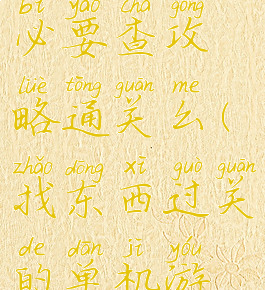 bì yào chá gōng
必要查攻
lüè tōng guān me
略通关么(
zhǎo dōng xī guò guān
找东西过关
de dān jī yóu
的单机游